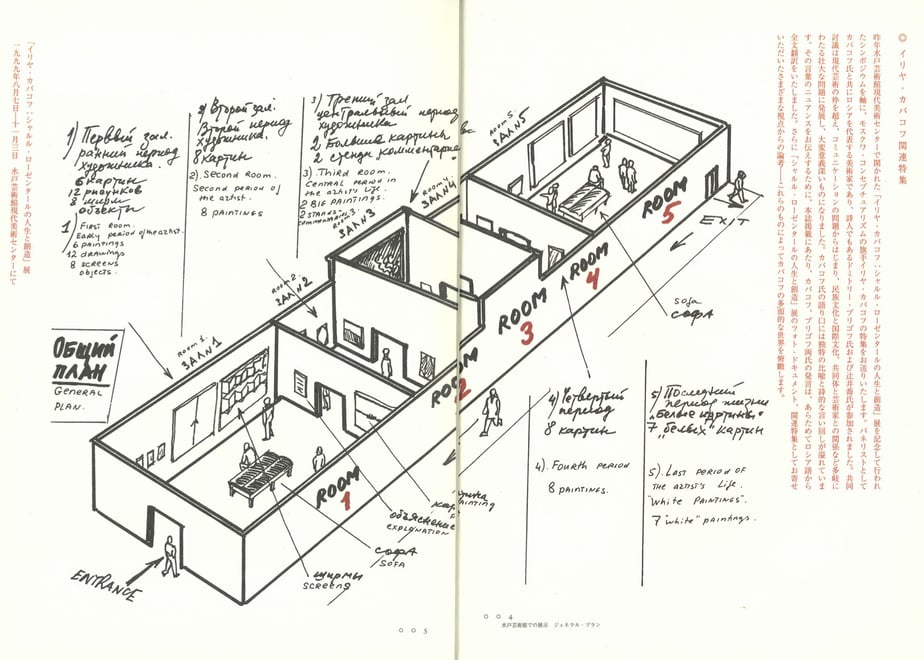 ◎ イリヤ・カバコフ関連特集
昨年水戸芸術館現代美術センターで開かれた「イリヤ・カバコフ〈シャルル・ローゼンタールの人生と創造〉展を記念して行われ
たシンポジウムを軸に、モスクワ・コンセプチュアリズムの旗手イリヤ・カバコフの特集をお送りいたします。パネリストとして
カバコフ氏と共にロシアを代表する美術家であり、詩人でもあるドミトリー・プリゴフ氏および辻井喬氏が参加されました。共同
討議は現代芸術の枠を超え、コミュニケーションの問題からはじまり、民族文化と国際文化、共同体と芸術家との関係など多岐に
わたる壮大な問題に発展し、大変意義深いものになりました。カバコフ氏の語り口には独特の比喩と詩的な言い回しが溢れていま
す。その言葉のニュアンスをお伝えするために、本誌掲載にあたり、カバコフ、プリゴフ両氏の発言は、あらためてロシア語から
全文翻訳をいたしました。さらに「シャルル・ローゼンタールの人生と創造」展のフォト・ドキュメント、関連特集としてお寄せ
いただいたさまざまな視点からの論考――これらのものによってカバコフの多面的な世界を俯瞰します。
「イリヤ・カバコフ〈シャルル・ローゼンタールの人生と創造」展
一九九九年八月七日―十一月三日 水戸芸術館現代美術センターにて
1) Первый зал.
ранний период
художника.
6 картин
12 рисунков
8 ширм
объекты
1) First room.
Early period of the artist.
6 paintings
12 drawings
8 screens
objects.
2) Второй зал.
Второй период
художника.
8 картин
2). Second Room.
Second period of
the artist.
8 paintings
3) Третий зал
центральный период
художника
2 большие картины
2 стенди комментарие
3). Third room.
Central period in
the artist's life.
2 big paintings
2 stands
commentaries
ROOM 1.
ЗАЛ 1
ROOM 2.
ЗАЛ 2
ROOM 3.
ЗАЛ 3
ROOM 4
ЗАЛ 4
ROOM 5.
ЗАЛ 5
ОБЩИЙ
ПЛАН
GENERAL
PLAN.
ROOM 1
ROOM 2
ROOM 3
ROOM 4
ROOM 5
EXIT
ENTRANCE
sofa
софа
объяснение
explanation
софа
sofa
ширмы
screens
4) Четвертый
период
8 картин
4). Fourth period
8 paintings.
5) Последний
период жизни
"Белые картины"
7 "белых" картин
5). Last period of
the artist's life.
"White paintings".
7 "white" paintings.
005
004
水戸芸術館での展示 ジェネラル・プラン